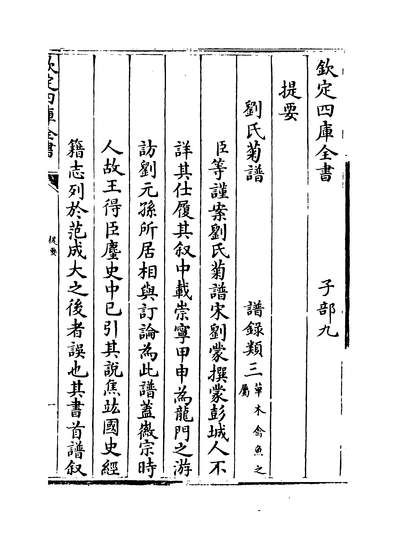 欽定四庫全書　子部九
提要
劉氏菊譜　譜錄類三草木禽魚之屬
臣等謹案劉氏菊譜宋劉蒙撰蒙彭城人不
詳其仕履其叙中載崇寧甲申為龍門之游
訪劉元孫所居相與訂論為此譜蓋徽宗時
人故王得臣麈史中已引其說焦竑國史經
籍志列於范成大之後者誤也其書首譜叙
欽定四庫全書
提要
一